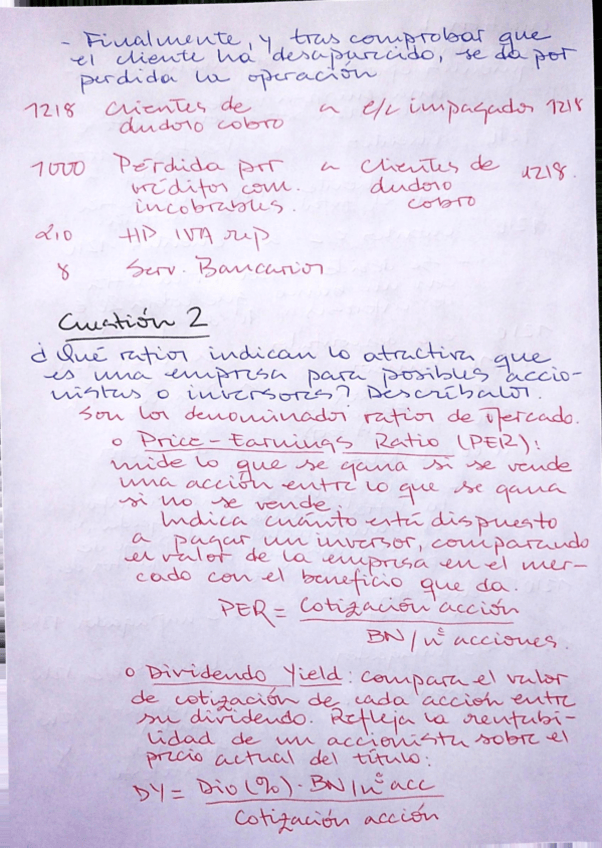 - Finalmente, y tras comprobar que
el cliente ha desaparecido, se da por
perdida la operación
1218 Clientes de dudoso cobro a e/c impagados 1218
1000 Pérdida por créditos com. incobrables. a Clientes de dudoso cobro 1218.
210 HP IVA rep
8 Serv. Bancarios
Cuestión 2
¿Qué ratios indican lo atractiva que
es una empresa para posibles accio-
nistas o inversores? Descríbalos.
Son los denominados ratios de Mercado.
o Price-Earnings Ratio (PER):
mide lo que se gana si se vende
una acción entre lo que se gana
si no se vende.
Indica cuánto está dispuesto
a pagar un inversor, comparando
el valor de la empresa en el mer-
cado con el beneficio que da.
PER = Cotización acción
BN/nº acciones.
o Dividendo Yield: compara el valor
de cotización de cada acción entre
su dividendo. Refleja la rentabi-
lidad de un accionista sobre el
precio actual del título:
DY = Div (%) · BN/nº acc
Cotización acción